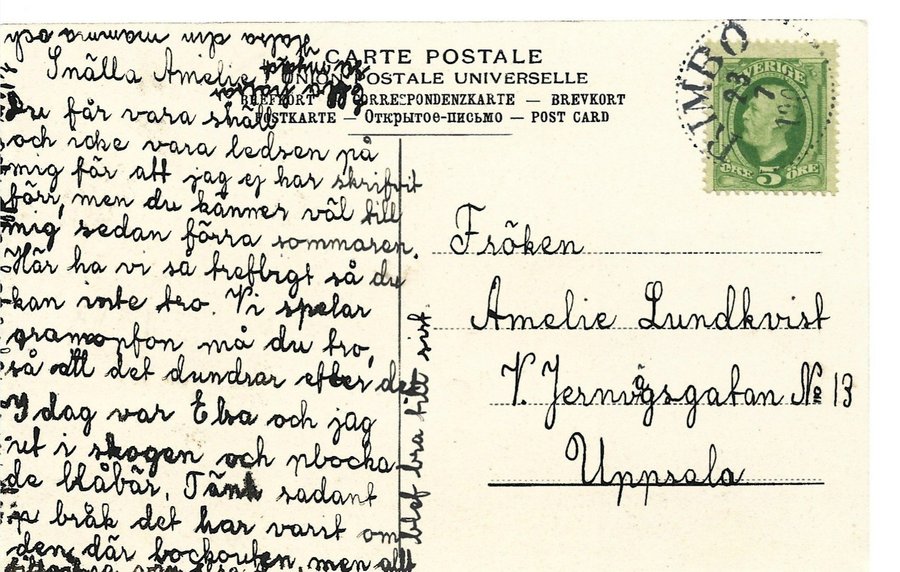 CARTE POSTALE
UNION POSTALE UNIVERSELLE
BREFKORT — CORRESPONDENZKARTE — BREVKORT
POSTKARTE — Открытое-письмо — POST CARD
Hälsa din mamma och
Snälla Amelie!
Du får vara snäll
och icke vara ledsen på
mig för att jag ej har skrifvit
förr, men du känner väl till
mig sedan förra sommaren.
Här ha vi så trefligt så du
kan inte tro. Vi spelar
gramopfon må du tro,
så att det dundrar efter det
I dag var Elsa och jag
ut i skogen och plocka-
de blåbär. Tänk sadant
bråk det har varit om
den där bockouten, men allt
blef bra till sist.
RIMBO
23
7
SVERIGE
ÖRE 5 ÖRE
Fröken
Amelie Lundkvist
V. Jernvgsgatan No 13
Uppsala